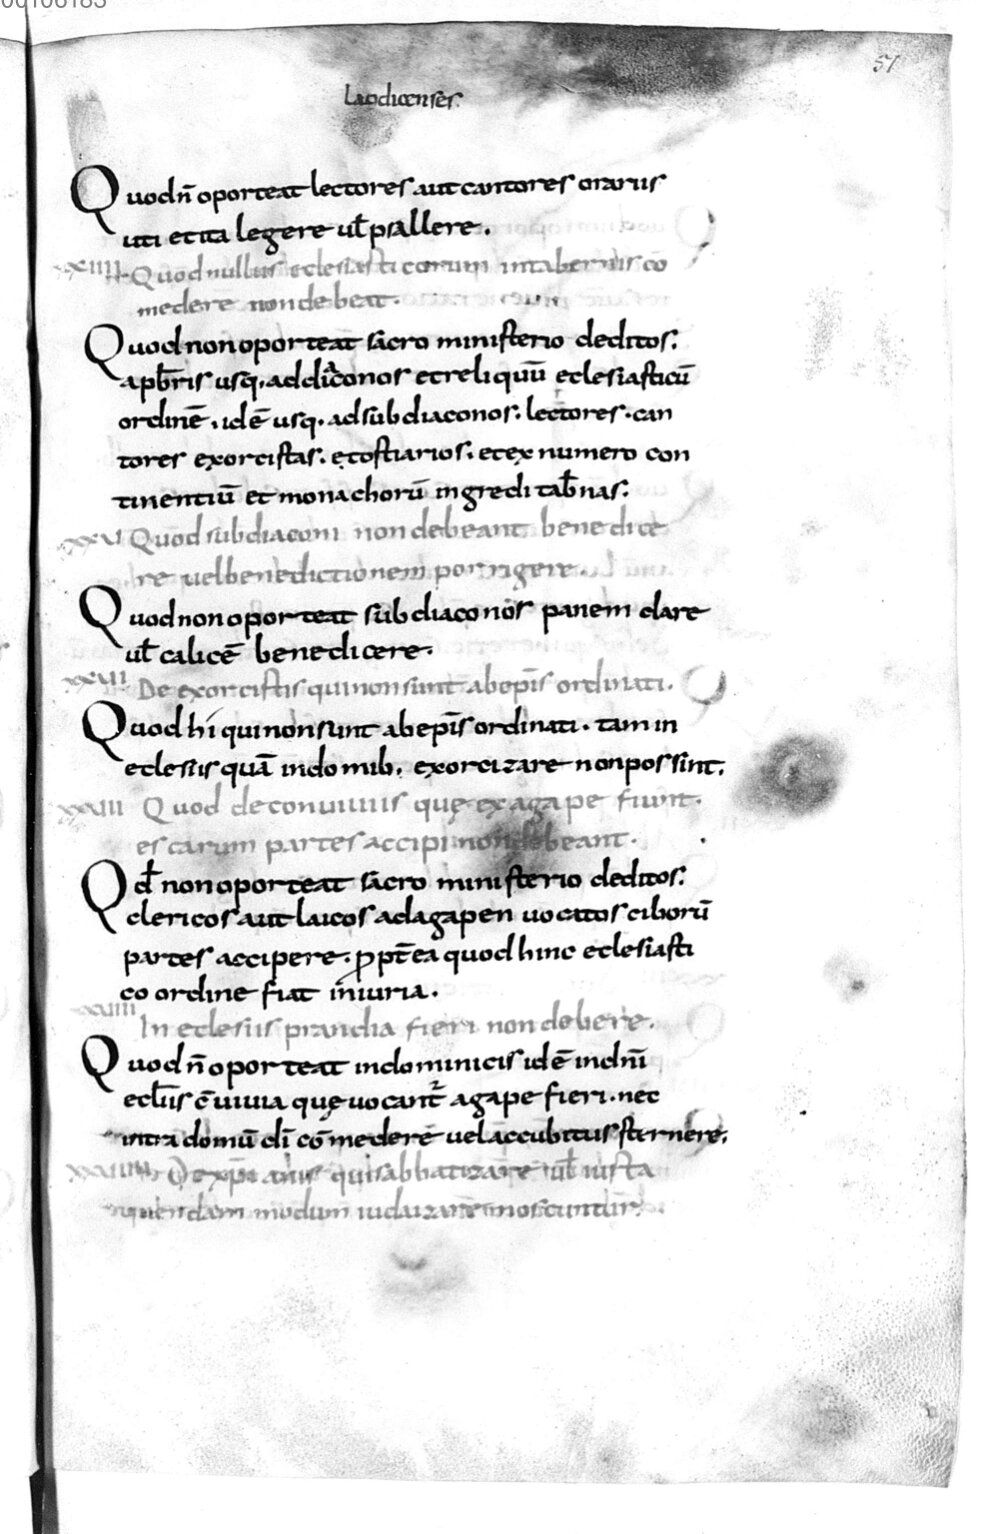 51
Laodicenses.
Quod n̄ oporteat lectores aut cantores orariis
uti et ita legere ul̄ psallere.
xxiiii. Quod nullus eclesiasticorum in tabernis cō
medere non debeat.
Quod non oporteat sacro ministerio deditos.
a pb̄ris usq. ad diaconos et reliquū eclesiasticū
ordinē. idē usq. ad subdiaconos. lectores. can
tores exorcistas. et ostiarios. et ex numero con
tinentiū et monachorū ingredi tab̄nas.
xxv Quod subdiaconi non debeant benedice
re uel benedictionem porrigere.
Quod non oporteat subdiaconos panem dare
ul̄ calicē benedicere.
xxvi De exorcistis qui non sunt ab ep̄is ordinati.
Quod hi qui non sunt ab ep̄is ordinati. tam in
eclesiis quā in domib. exorcizare non possint.
xxvii Quod de conuiuiis quę ex agape fiunt.
escarum partes accipi non debeant.
Qd̄ non oporteat sacro ministerio deditos.
clericos aut laicos ad agapen uocatos ciborū
partes accipere. ꝓpt̄ea quod hinc eclesiasti
co ordine fiat iniuria.
xxviii In eclesiis prandia fieri non debere.
Quod n̄ oporteat in dominicis idē in dn̄i
ecl̄iis cōuiuia quę uocant̄ agape fieri. nec
intra domū dī cōmedere uel accubitus sternere.
xxviiii De xp̄ianis qui sabbatizare ul̄ iuxta
quendam modum iudaizare noscuntur.